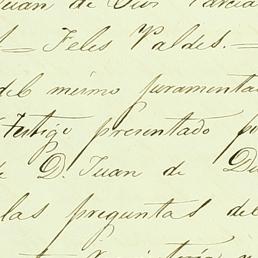 Juan de Dios Garcia
= Feles Valdes. =
del mismo juramenta
testigo presentado p
D. Juan de D
las preguntas del